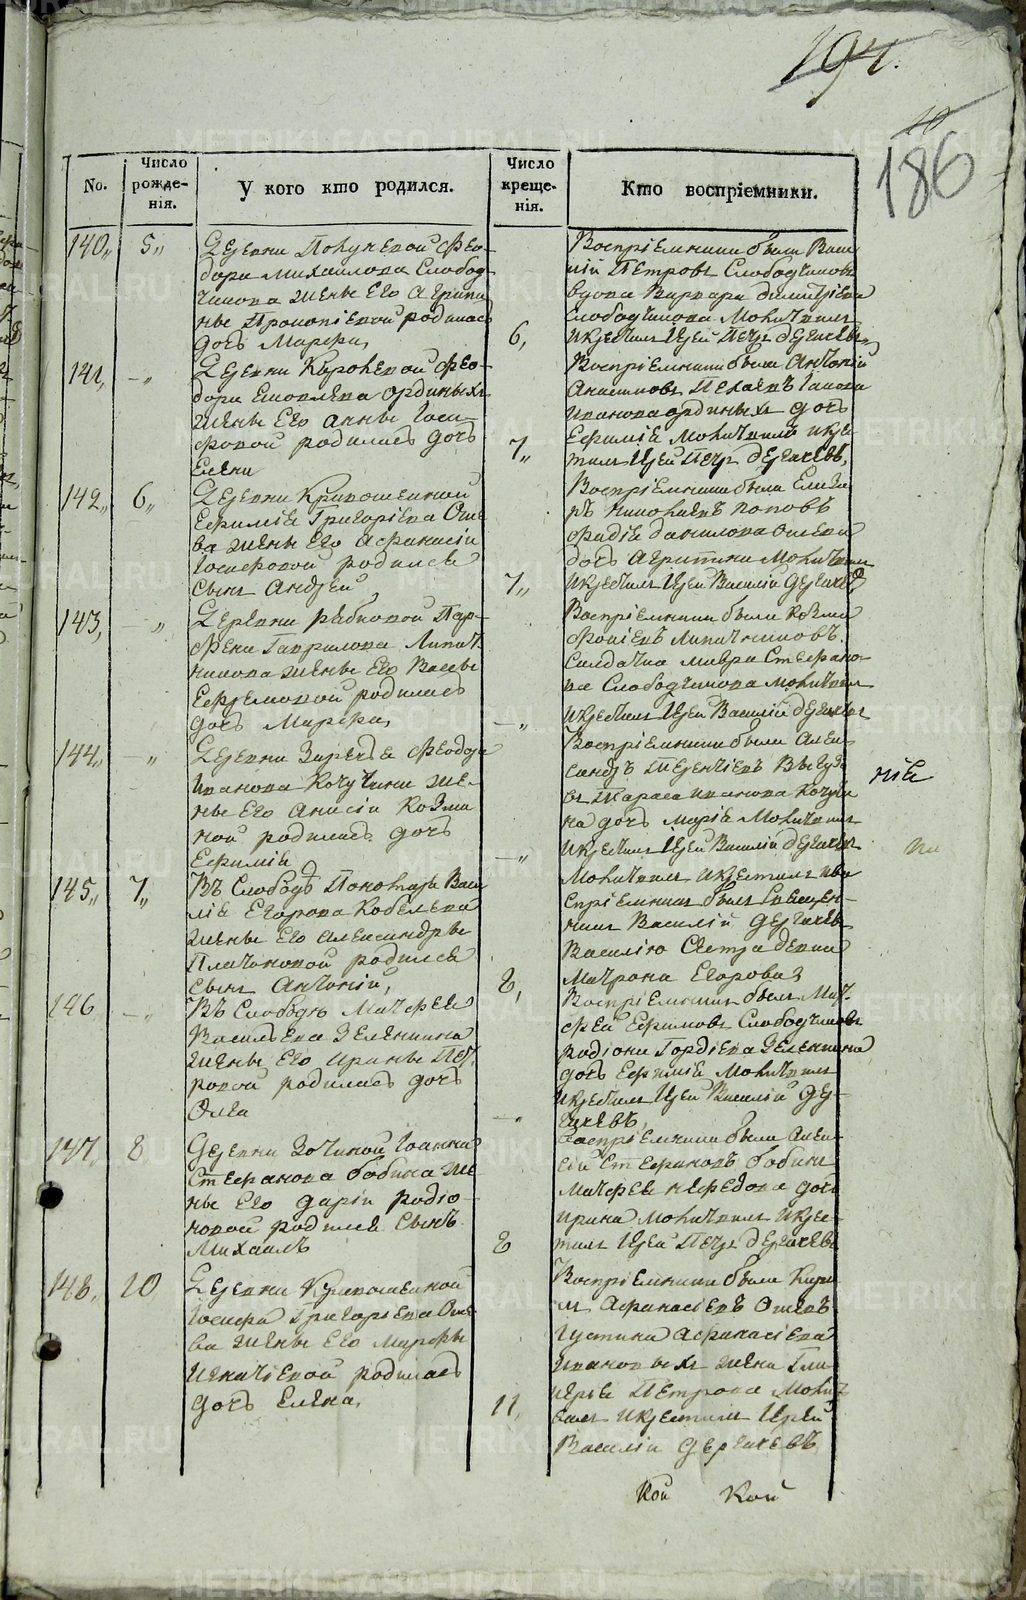 194.
10
186
No.
Число рожденія.
У кого кто родился.
Число крещенія.
Кто воспріемники.
140,, 5,,
Деревни Фео-
дора Михаилова Слобод
чикова жены его Агрипи
ны Прокопіевой родилась
дочь Марѳа,
6,
Воспріемники были Васи
лій Петровъ Слободчиковъ
вдова Варвара Димитріева
Слободчикова Молитвилъ
и крестилъ Іерей Петръ Дергачевъ,
141, -,,
Деревни Фео-
дора Яковлева Ординыхъ
жены его Анны Іоси-
фовой родилась дочь
Елена
7,,
Воспріемники были Антоній
Иванова Ординыхъ дочь
Ефимія Молитвилъ и кре-
тилъ Іерей Петръ Дергачевъ,
142,, 6,,
Деревни Кривошеиной
Ефимія Григоріева Още
ва жены его Афанасіи
Іосифовой родился
сынъ Андрей
7,,
Воспріемники были Елиза
ръ Поповъ
Фадія Данилова Ощева
дочь Агрипина Молитвилъ
и крестилъ Іерей Василій Дергачевъ
143, ,,
Деревни Рябковой Пар-
фена Гаврилова Липат-
никова жены его Вассы
Ефремовой родилась
дочь Марѳа,
-,,
Воспріемники были Козма
Липатниковъ.
Солдатка Мавра Стефано-
ва Слободчикова Молитвилъ
и крестилъ Іерей Василій Дергачевъ
144,, ,,
Деревни Заречья Феодора
Иванова Кочутина же-
ны его Анисіи Козми
ной родилась дочь
Ефимія
-,,
Воспріемники были Алек-
сандръ Терентіевъ
въ Тараса Иванова Кочути
на дочь Марія Молитвилъ
и крестилъ Іерей Василій Дергачевъ
ніе
145,, 7,,
Въ Слободѣ Пономаря Васи
лія Егорова Кобелева
жены его Александры
Платоновой родился
сынъ Антоній,
8,
Молитвилъ и крестилъ и во
спріемникъ былъ Священ-
никъ Василій Дергачевъ
Василію Сестра девка
Матрона Егорова
146 -,,
Въ Слободѣ Матфея
Васильева Зеленкина
жены его Ирины Пет-
ровой родилась дочь
Олга
-,,
Воспріемникъ былъ Мат-
фей Ефимовъ Слободчиковъ
Родіона Гордіева Зеленкина
дочь Ефимія Молитвилъ
и крестилъ Іерей Василій Дер-
гачевъ,
147, 8
Деревни Зоткиной Іоанна
Стефанова Бабина же
ны его Даріи Родіо-
новой родился сынъ
Михаилъ
8
Воспріемники были Алек-
сій Стефановъ Бабинъ
Матфея Нефедова дочь
Ирина Молитвилъ и кре-
тилъ Іерей Петръ Дергачевъ
148, 10
Деревни Кривошеиной
Іосифа Григоріева Още
ва жены его Марфы
Игнатіевой родилась
дочь Елена,
11,
Воспріемники были Кири-
лъ Афанасіевъ Ощевъ
Іустина Афанасіева
Ивановыхъ жена Гли-
керія Петрова Молит
вилъ и крестилъ Іерей
Василій Дергачевъ
Кой Кой